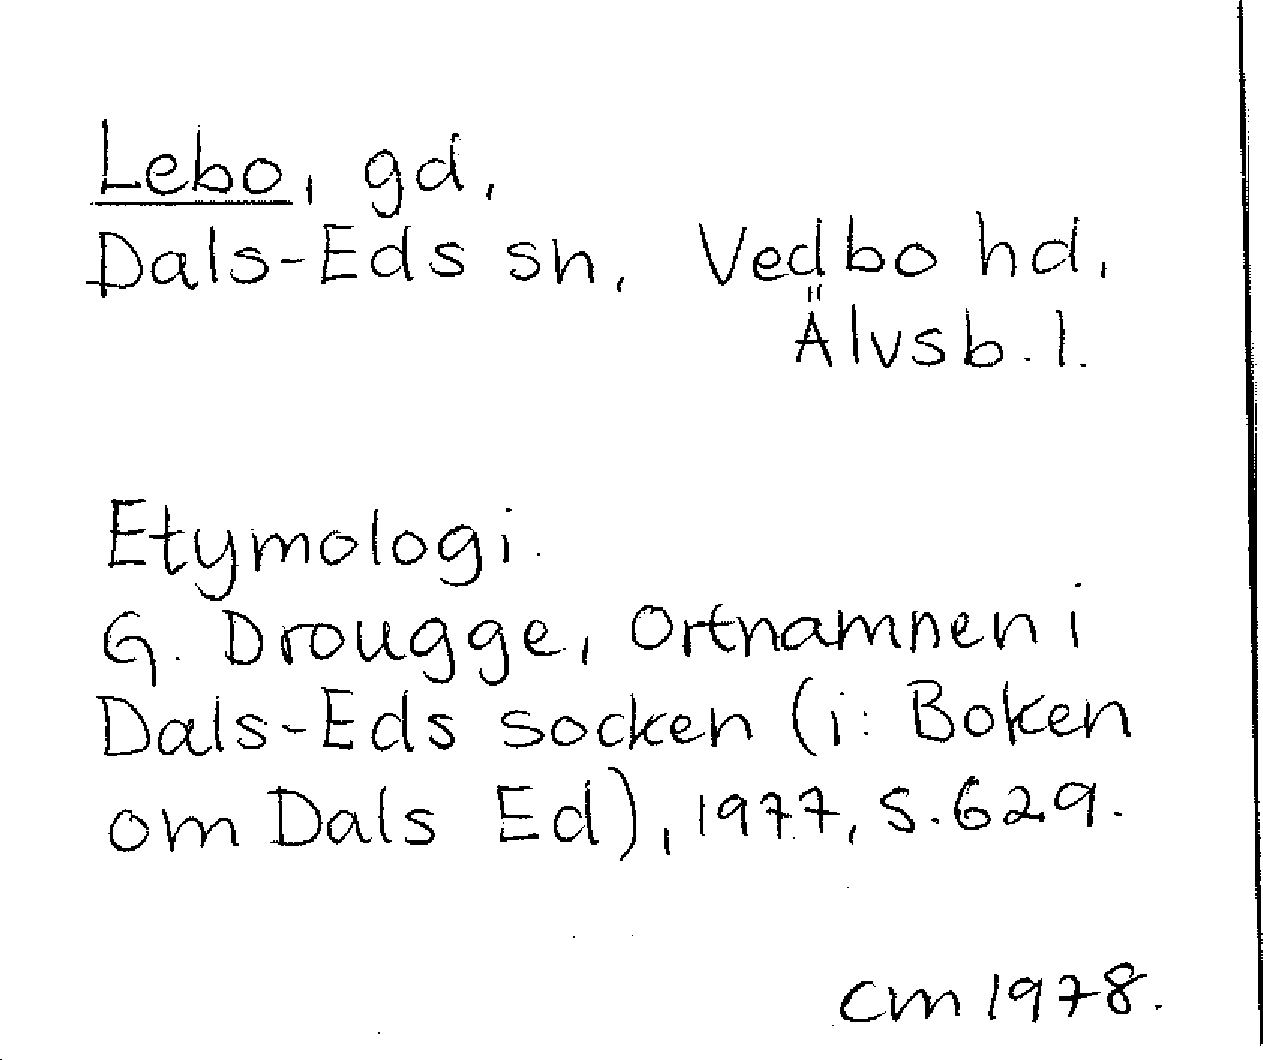 Lebo, gd,
Dals-Eds sn, Vedbo hd,
Älvsb. l.
Etymologi.
G. Drougge, Ortnamnen i
Dals-Eds socken (i: Boken
om Dals Ed), 1977, s. 629.
CM 1978.